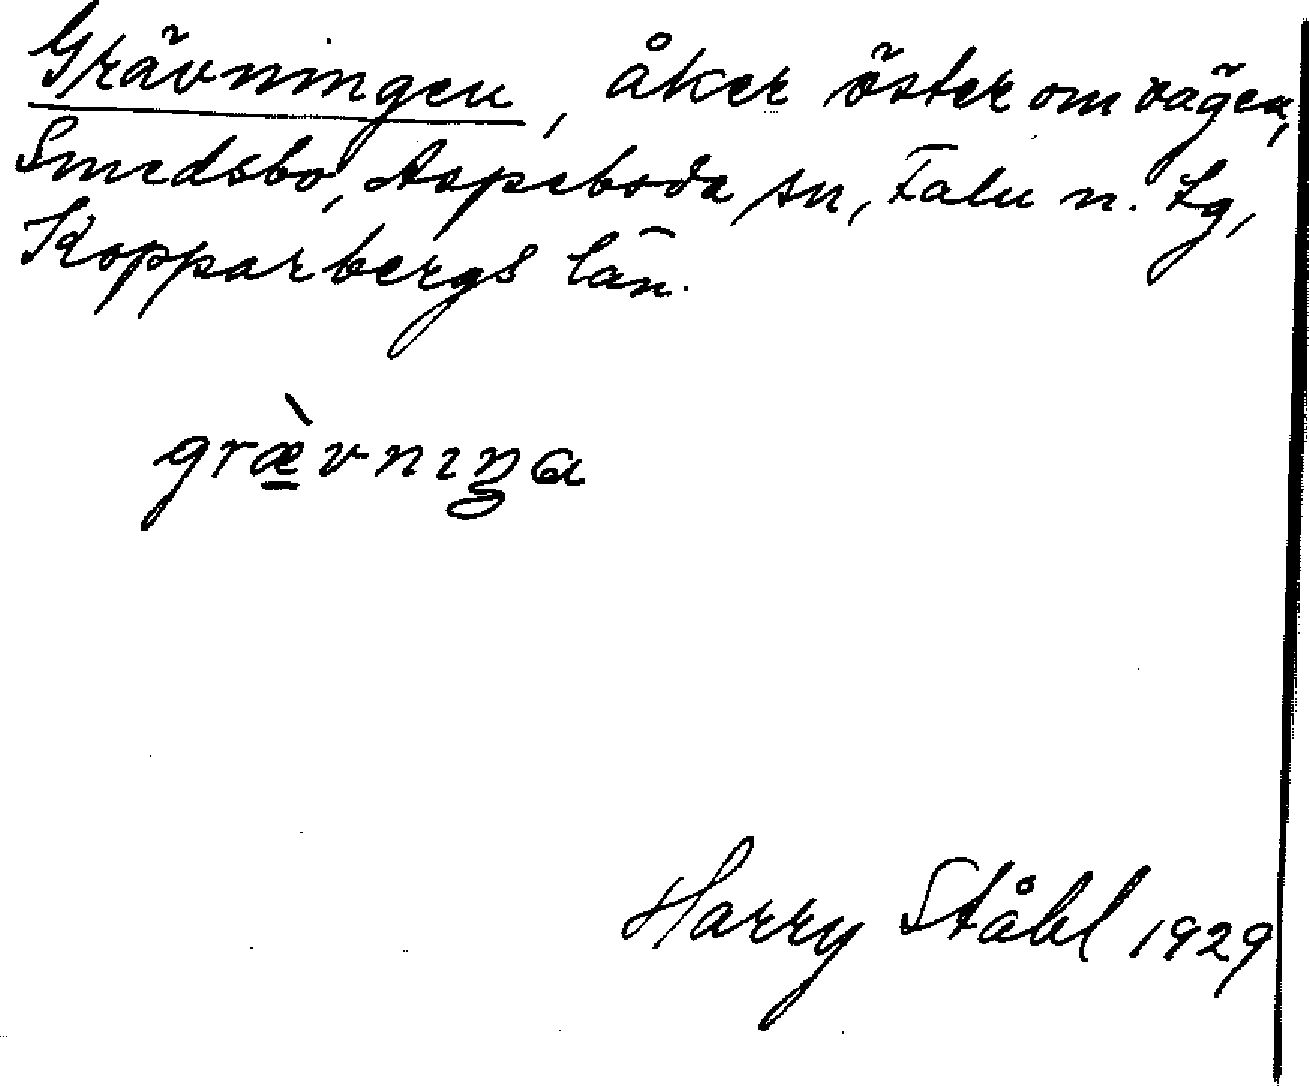 Grävningen, åker öster om vägen,
Smedsbo, Aspeboda sn, Falu n. tg,
Kopparbergs län.
græ̠̀vnıŋa
Harry Ståhl 1929